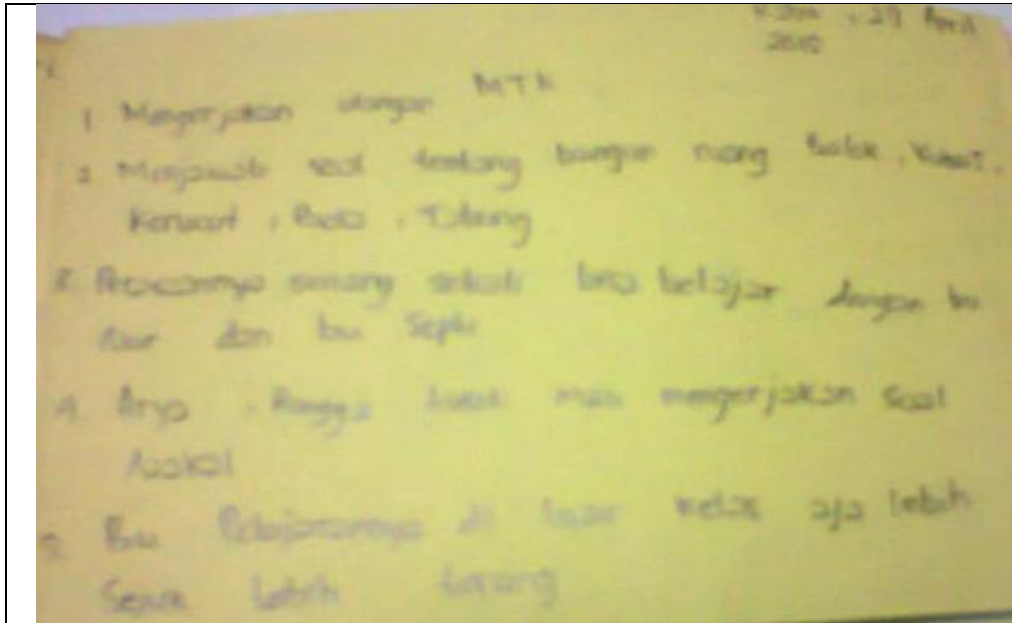 29 April
2010
1 Mengerjakan ulangan MTK
2 Menjawab soal tentang bangun ruang Balok, Kubus,
Kerucut, Bola, Tabung
3. Perasaannya senang sekali bisa belajar dengan bu
dan bu Septi
4. Arya, Rangga mau mengerjakan soal
5. Bu Pelajarannya di luar kelas aja lebih
Sejuk lebih terang